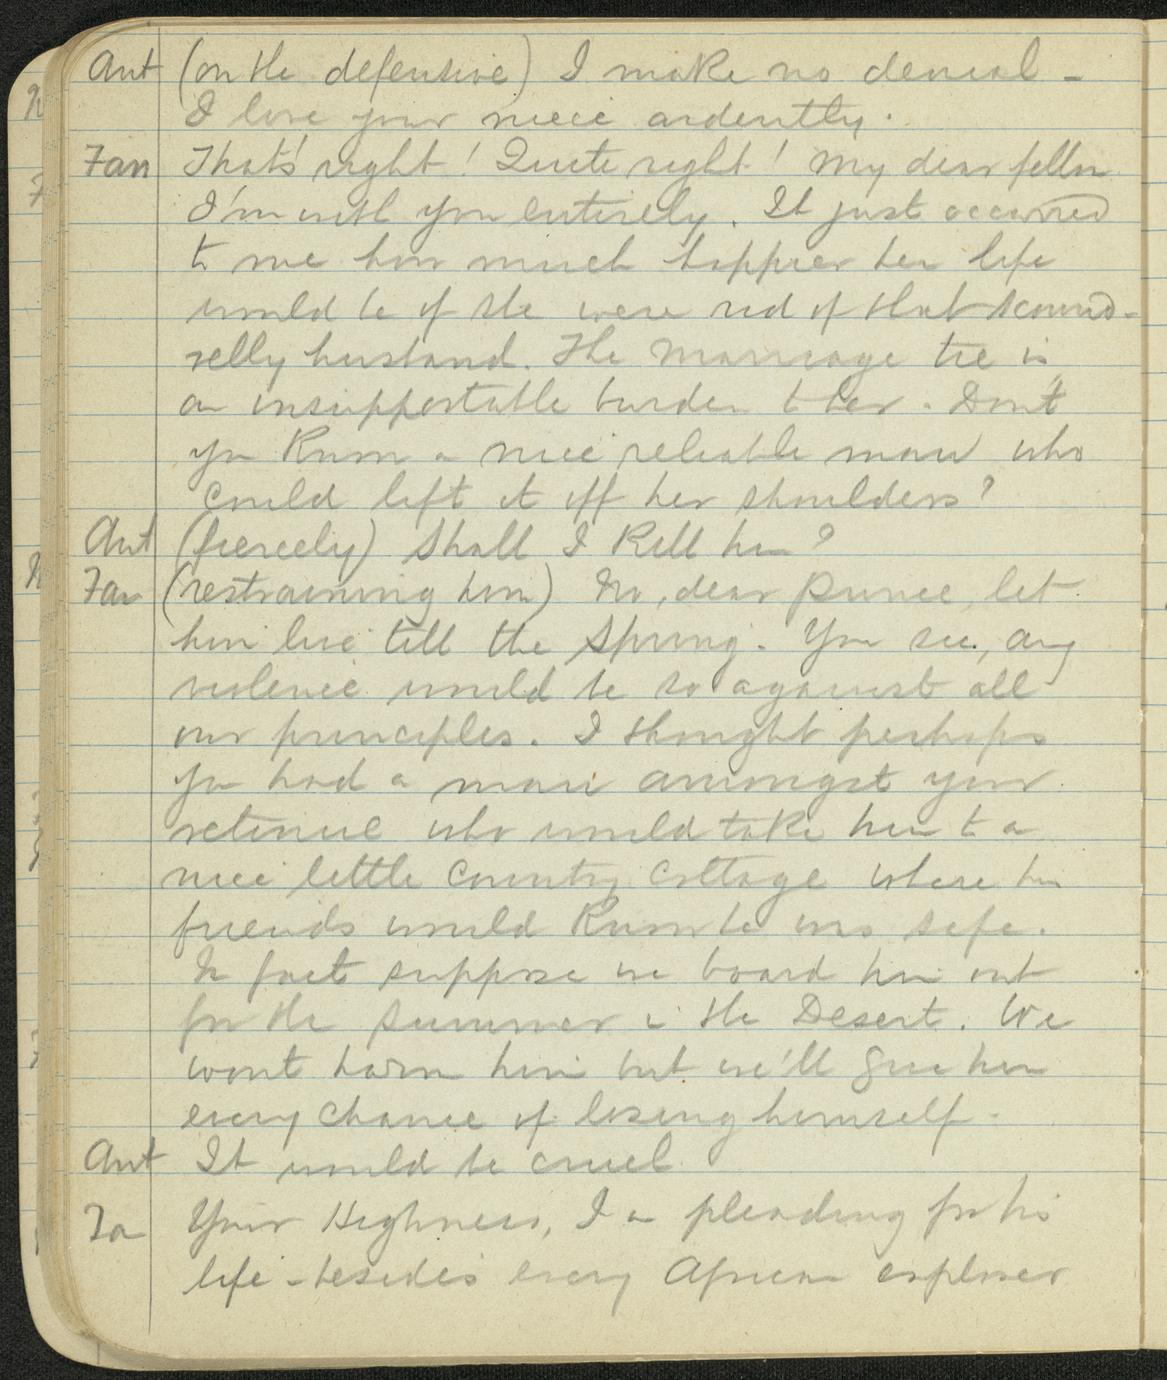 Ant (on the defensive) I make no denial -
I love your niece ardently.
Fan That's right! Quite right! My dear fellow
I'm with you entirely. It just occurred
to me how much happier her life
would be if she were rid of that scound-
relly husband. The marriage tie is
an insupportable burden to her. Don't
you know a nice reliable man who
could lift it off her shoulders?
Ant (fiercely) Shall I kill him?
Fan (restraining him) No, dear Prince, let
him live till the Spring. You see, any
violence would be so against all
our principles. I thought perhaps
you had a man amongst your
retinue who would take him to a
nice little country cottage where his
friends would know he was safe.
In fact suppose we board him out
for the summer in the Desert. We
wont harm him but we'll give him
every chance of losing himself.
Ant It would be cruel
Fa Your Highness, I am pleading for his
life - besides every African explorer